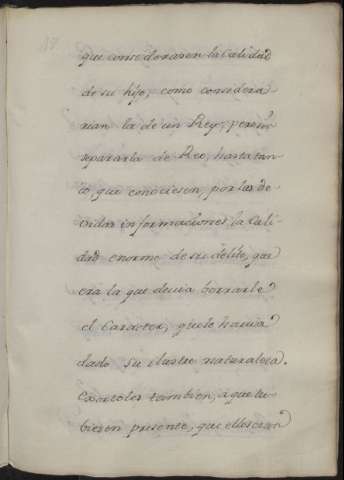 que considerasen la Calidad
de su hijo, como considera
rian la de un Rey; pero sin
separarla de Reo, hasta tan
to, que conociesen, por las de
vidas informaciones, la Cali
dad enorme de su delito, que
era la que devia borrarle
el Caracter, que le havia
dado su ilustre naturaleza.
Exortoles tambien, a que tu
biesen presente, que ellos eran